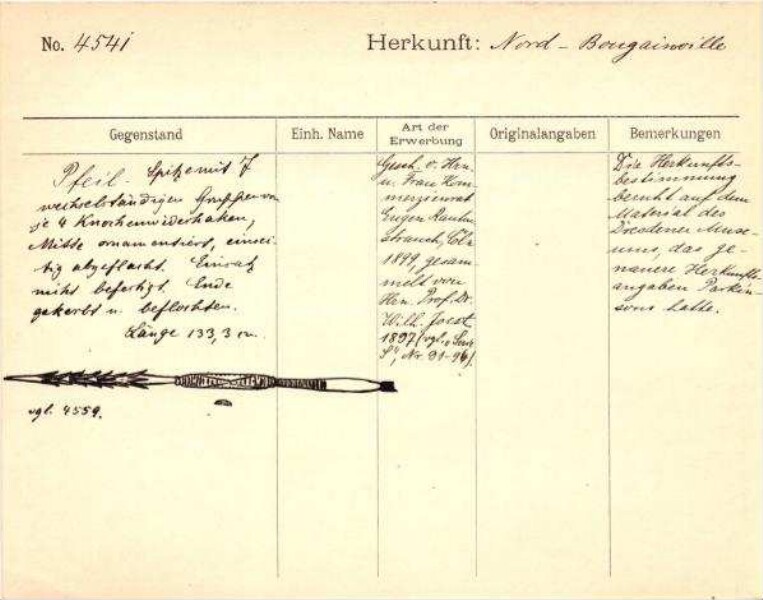 No. 4541
Herkunft: Nord - Bougainville
Gegenstand
Einh. Name
Art der Erwerbung
Originalangaben
Bemerkungen
Pfeil. Spitze mit 7
wechselständigen Gruppen von
je 4 Knochenwiderhaken,
Mitte ornamentiert, einsei-
tig abgeflacht. Einsatz
nicht befestigt. Ende
gekerbt u. beflochten.
Länge 133,3 cm.
vgl. 4559.
Gesch. v. Hrn.
u. Frau Kom-
merzienrat
Eugen Rauten-
strauch, Cöln
1899, gesam-
melt von
Hrn. Prof. Dr.
Wilh. Joest
1897 (vgl.
Nr. 91-96).
Die Herkunfts-
bestimmung
beruht auf dem
Material des
Dresdener Muse-
ums, das ge-
nauere Herkunfts-
angaben Parkin-
sons hatte.